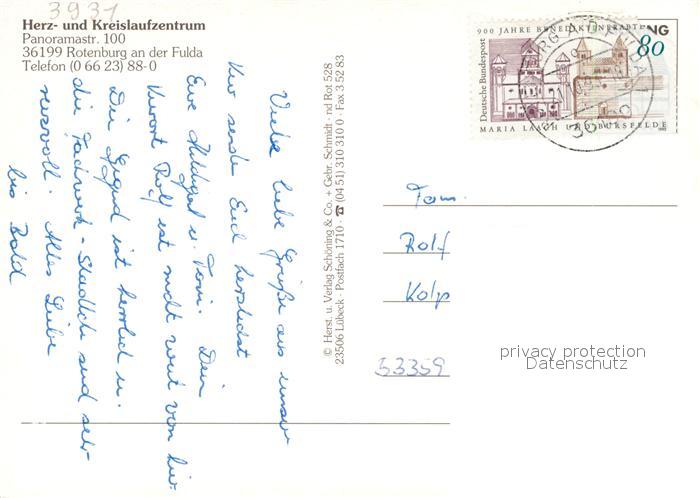 3931
Herz- und Kreislaufzentrum
Panoramastr. 100
36199 Rotenburg an der Fulda
Telefon (0 66 23) 88-0
Viele liebe Grüße aus unser
Kur sende Euch herzlichst
Eure Hildegard u. Fam. Dein
Kurort Rolf ist nicht weit von hier.
Die Gegend ist herrlich u.
die Fachwerk-Städtch sind sehr
reizvoll. Alles Liebe
bis Bald
© Herst. u. Verlag Schöning & Co. + Gebr. Schmidt · nd Rot 528
23506 Lübeck · Postfach 1710 · ☎ (04 51) 310 310 0 · Fax 3 52 83
900 JAHRE BENEDIKTINERABTEI
NG
80
Deutsche Bundespost
MARIA LAACH UND BURSFELDE
Fam.
Rolf
Kolp
53359
privacy protection
Datenschutz